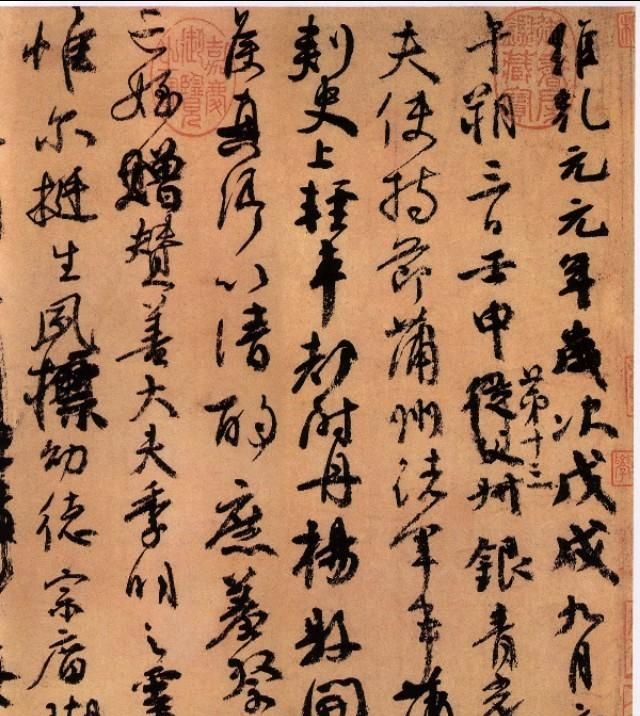 維乾元元年歲次戊戌九月
午朔三日壬申第十三從父㓝銀青光
夫使持節蒲州諸軍事蒲
刺史上輕車都尉丹楊縣開
侯真卿以清酌庶羞祭
亡姪贈贊善大夫季明之靈
惟爾挺生夙標幼德宗廟瑚